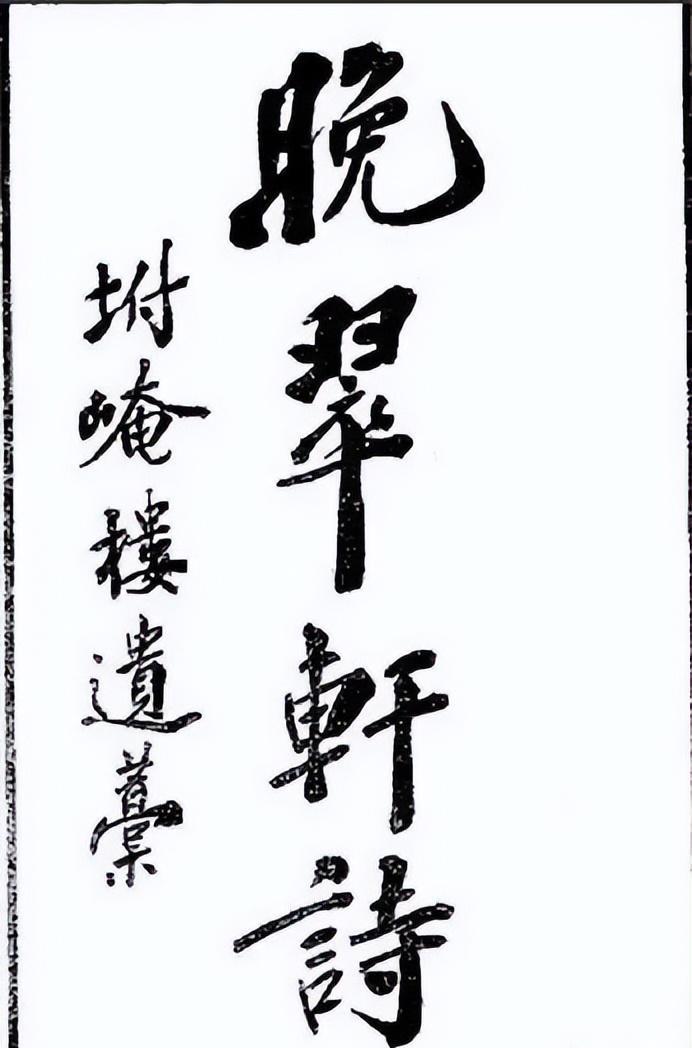 晚翠軒詩
坿崦樓遺藁